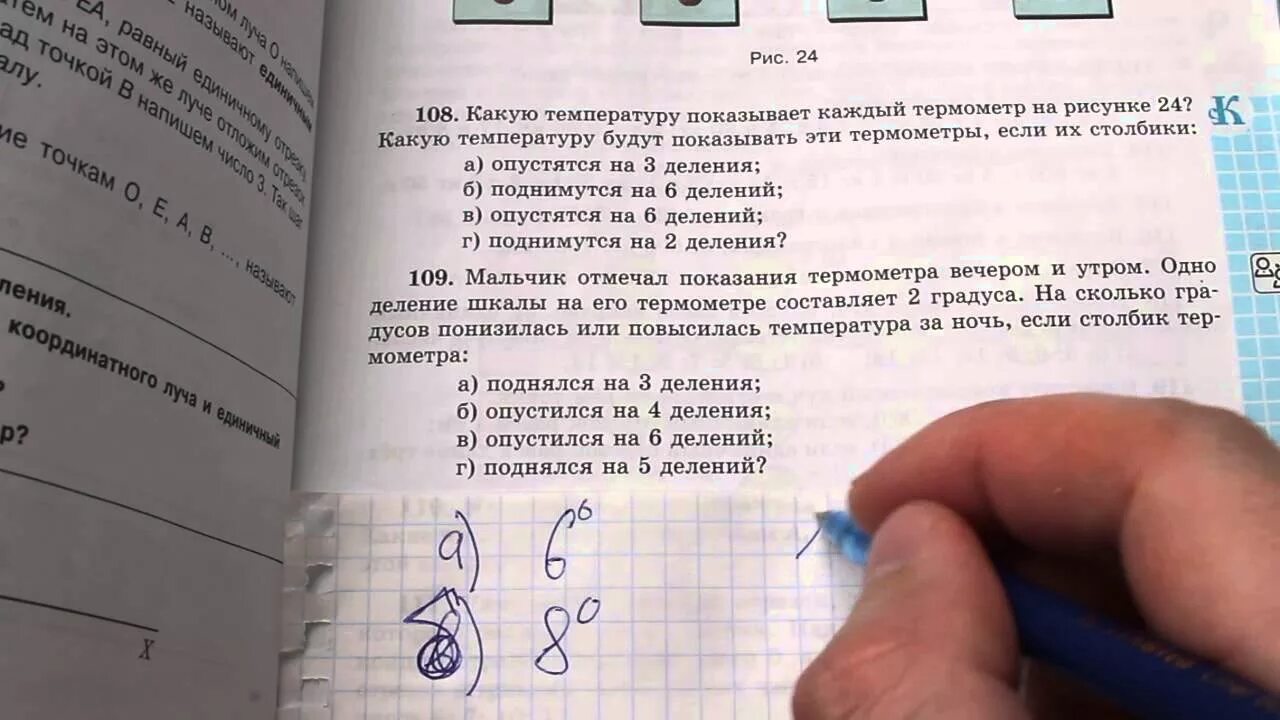 ном луча О напишем
называют единичным
ЕА, равный единичному отрезку
тем на этом же луче отложим отрезок
ад точкой В напишем число 3. Так шаг
алу.
ие точкам О, Е, А, В, ..., называют
ления.
координатного луча и единичный
р?
X
Рис. 24
108. Какую температуру показывает каждый термометр на рисунке 24?
Какую температуру будут показывать эти термометры, если их столбики:
а) опустятся на 3 деления;
б) поднимутся на 6 делений;
в) опустятся на 6 делений;
г) поднимутся на 2 деления?
К
109. Мальчик отмечал показания термометра вечером и утром. Одно
деление шкалы на его термометре составляет 2 градуса. На сколько гра-
дусов понизилась или повысилась температура за ночь, если столбик тер-
мометра:
а) поднялся на 3 деления;
б) опустился на 4 деления;
в) опустился на 6 делений;
г) поднялся на 5 делений?
а) 6°
б) 8°